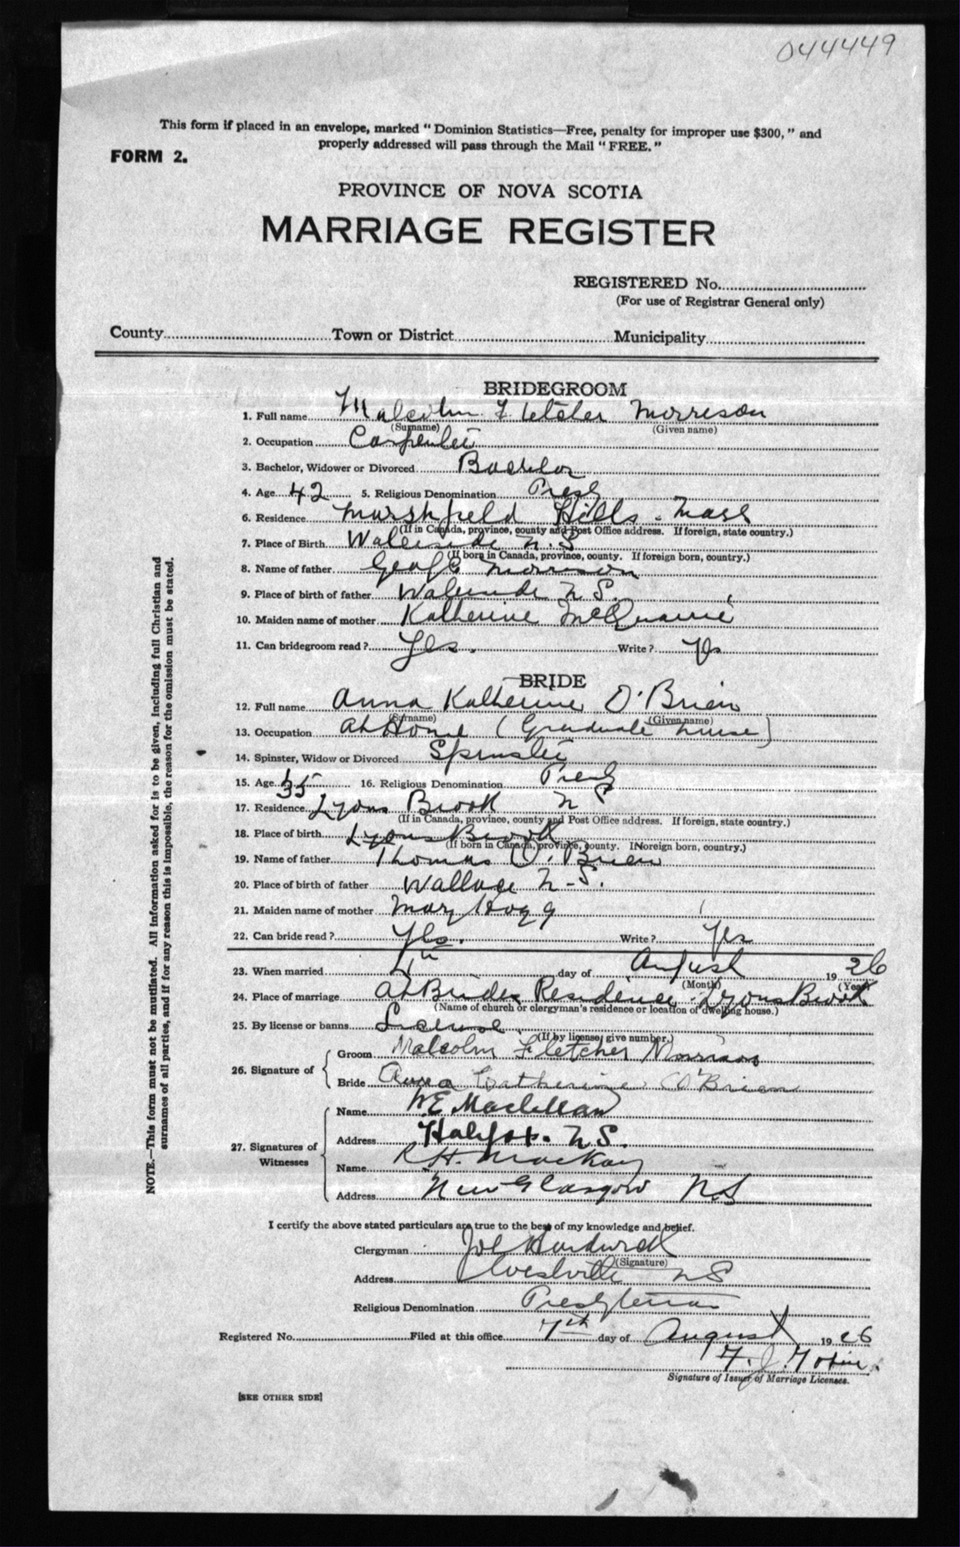 044449
This form if placed in an envelope, marked " Dominion Statistics—Free, penalty for improper use $300, " and
properly addressed will pass through the Mail " FREE. "
FORM 2.
PROVINCE OF NOVA SCOTIA
MARRIAGE REGISTER
REGISTERED No.
(For use of Registrar General only)
County Town or District Municipality
BRIDEGROOM
1. Full name Malcolm Fletcher Morrison
(Surname) (Given name)
2. Occupation Carpenter
3. Bachelor, Widower or Divorced Bachelor
4. Age 42 5. Religious Denomination Presb
6. Residence Marshfield Hills. Mass
(If in Canada, province, county and Post Office address. If foreign, state country.)
7. Place of Birth N.S
(If born in Canada, province, county. If foreign born, country.)
8. Name of father Morrison
9. Place of birth of father N.S.
10. Maiden name of mother Katherine McQuarrie
11. Can bridegroom read ? Yes. Write ? Yes
BRIDE
12. Full name Anna Katherine O'Brien
(Surname) (Given name)
13. Occupation At Home (Graduate Nurse)
14. Spinster, Widow or Divorced Spinster
15. Age 35 16. Religious Denomination Presb
17. Residence Lyons Brook N S
(If in Canada, province, county and Post Office address. If foreign, state country.)
18. Place of birth Lyons Brook
(If born in Canada, province, county. If foreign born, country.)
19. Name of father Thomas O'Brien
20. Place of birth of father Wallace N.S.
21. Maiden name of mother Mary Hogg
22. Can bride read ? Yes. Write ? Yes
23. When married day of August 1926
(Month) (Year)
24. Place of marriage At Brides Residence Lyons Brook
(Name of church or clergyman's residence or location of dwelling house.)
25. By license or banns License
(If by license, give number.)
26. Signature of
Groom Malcolm Fletcher Morrison
Bride Anna Catherine O'Brien
27. Signatures of Witnesses
Name W E Maclellan
Address Halifax. N.S.
Name R H. MacKay
Address New Glasgow N S
I certify the above stated particulars are true to the best of my knowledge and belief.
Clergyman
(Signature)
Address N S
Religious Denomination Presbyterian
Registered No. Filed at this office 7th day of August 1926
F. J. Tobin.
Signature of Issuer of Marriage Licenses.
[SEE OTHER SIDE]
NOTE.—This form must not be mutilated. All information asked for is to be given, including full Christian and
surnames of all parties, and if for any reason this is impossible, the reason for the omission must be stated.